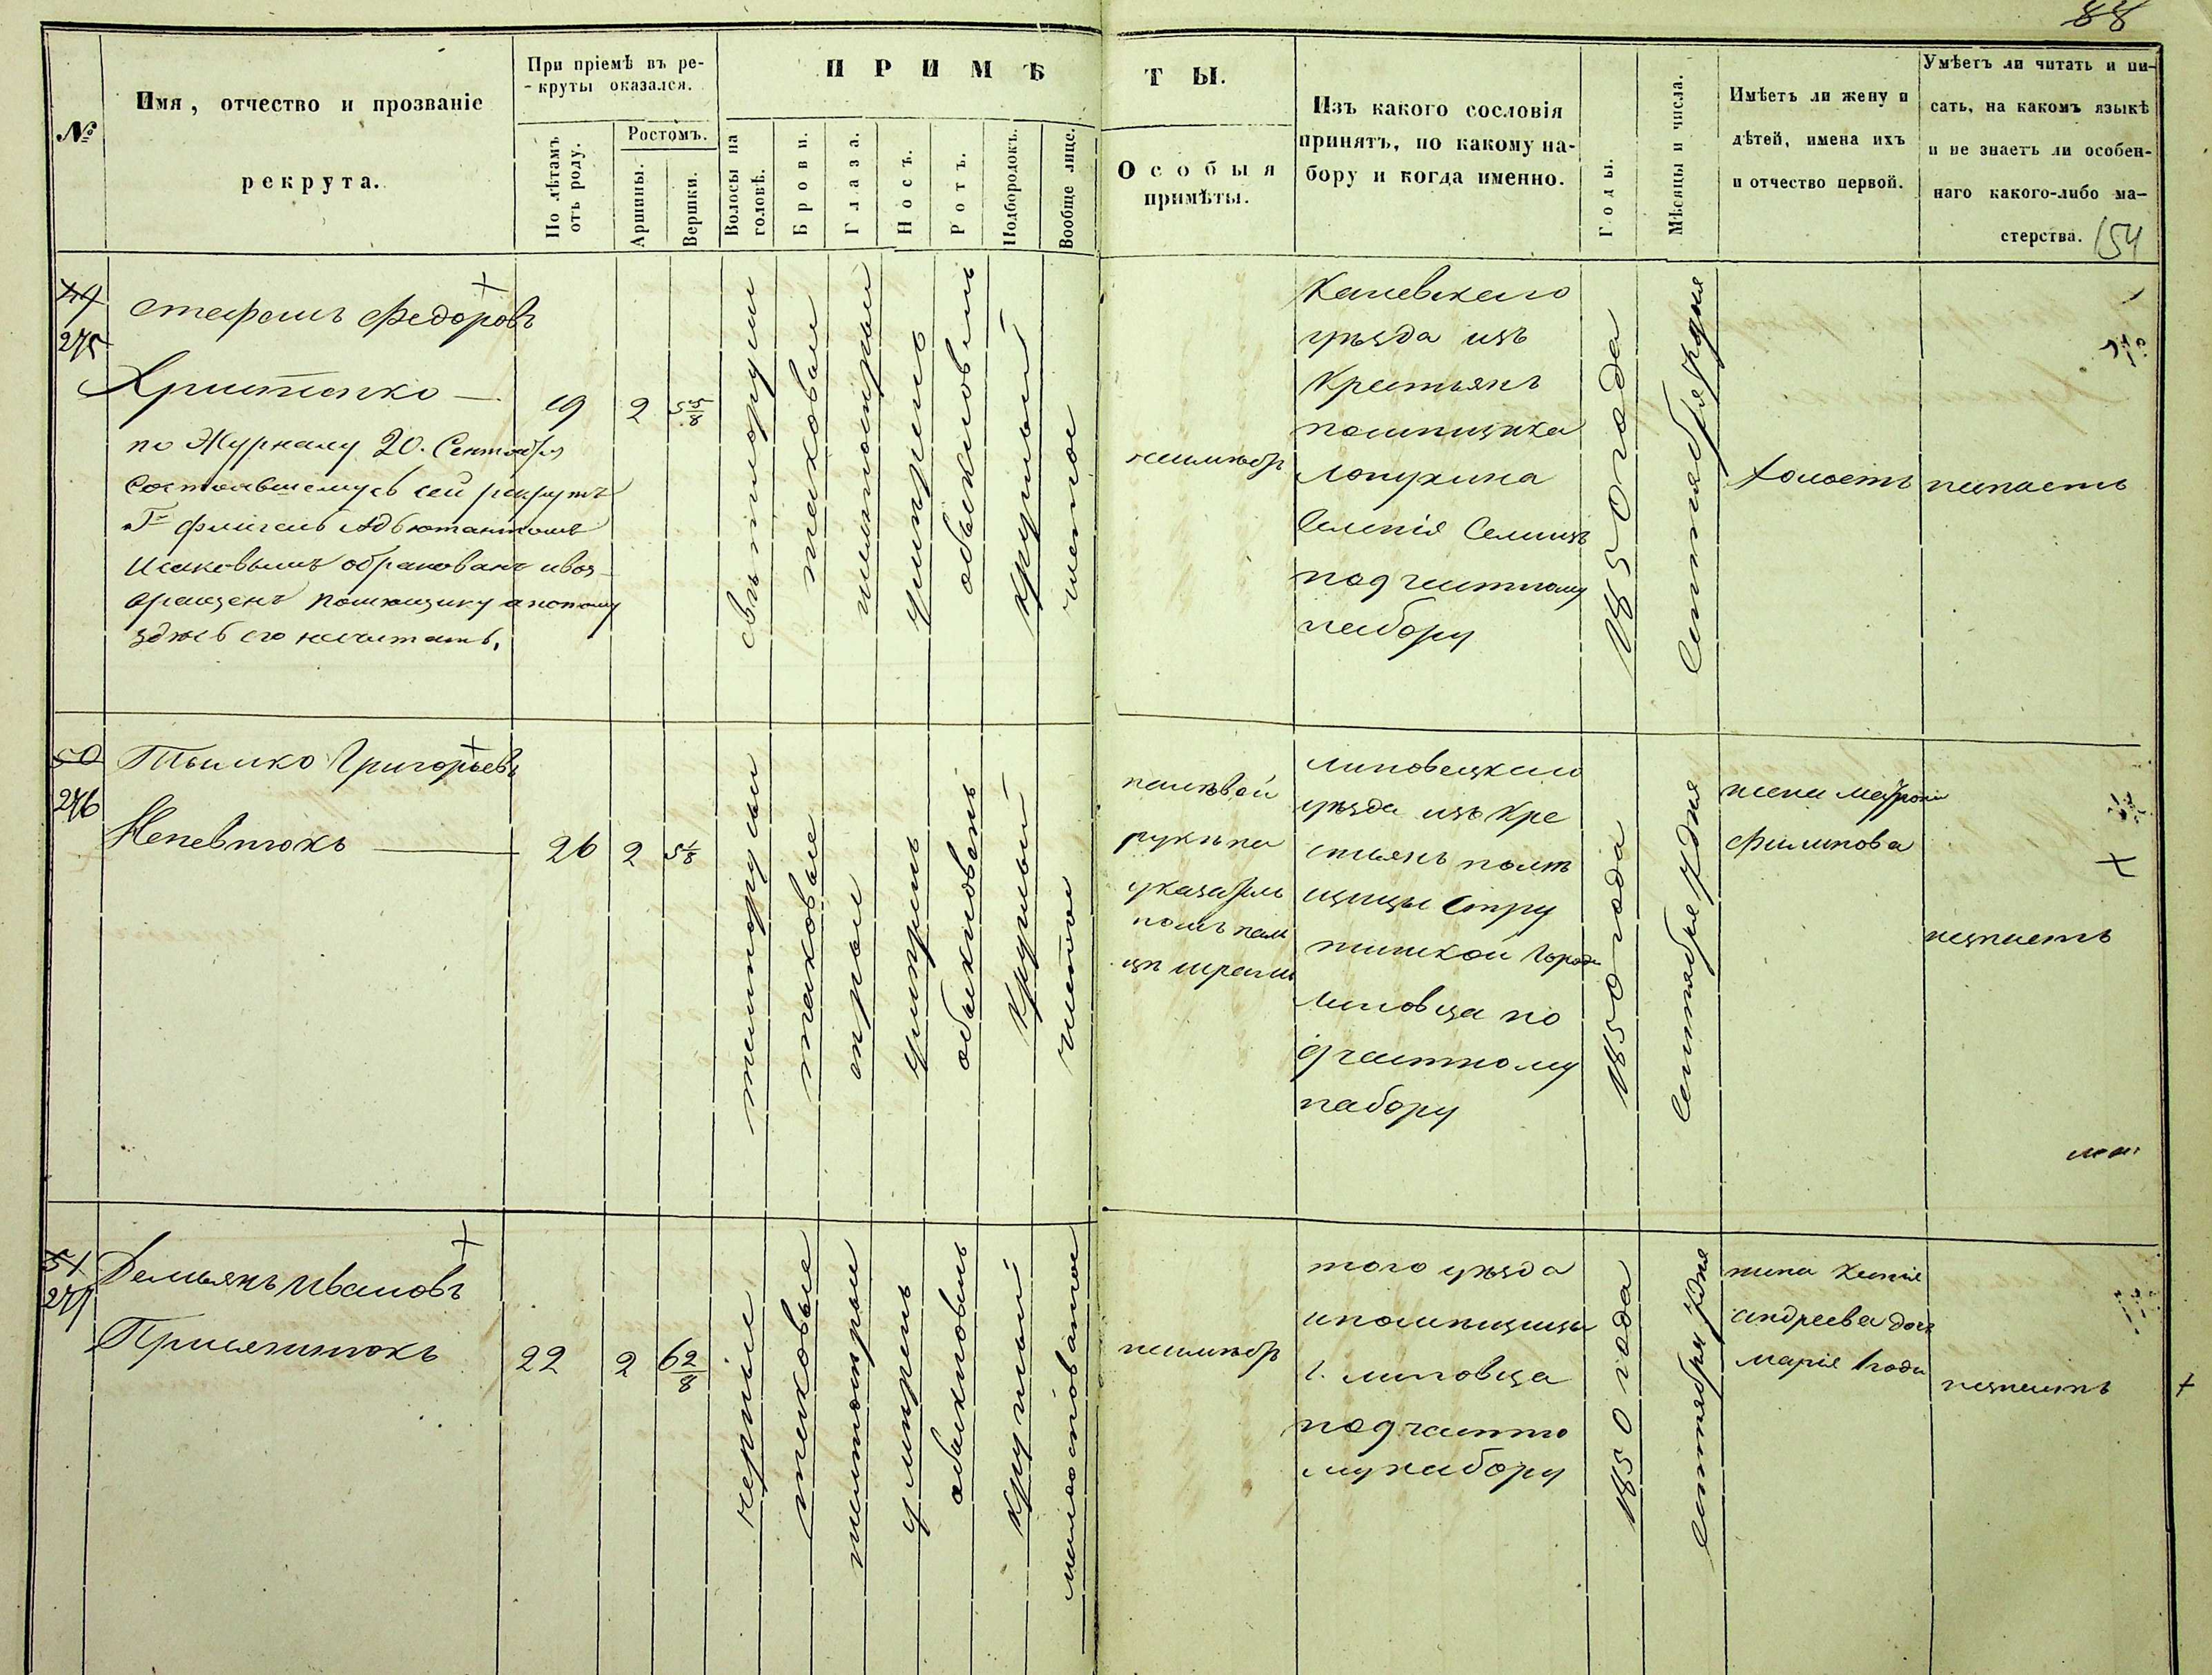 88
№
Имя, отчество и прозваніе
рекрута.
При пріемѣ въ ре-
-круты оказался.
По лѣтамъ
отъ роду.
Ростомъ.
Аршины.
Вершки.
ПРИМѢ
Волосы на
головѣ.
Брови.
Глаза.
Носъ.
Ротъ.
Подбородокъ.
Вообще лице.
ТЫ.
Особыя
примѣты.
Изъ какого сословія
принятъ, по какому на-
бору и когда именно.
Годы.
Мѣсяцы и числа.
Имѣетъ ли жену и
дѣтей, имена ихъ
и отчество первой.
Умѣетъ ли читать и пи-
сать, на какомъ языкѣ
и не знаетъ ли особен-
наго какого-либо ма-
стерства.
154
49
275
Стефанъ Федоровъ
Христенко —
по Журналу 20. Сентября
Состоявшемуся сей рекрутъ
Гⁿ Флигель Адъютантомъ
Исаковымъ обракованъ и воз-
вращенъ помѣщику а потому
здѣсь его не считать.
19
2
5 5/8
свѣтлорусыи
таковыи
умѣренъ
обыкновенъ
круглый
чистое
неимѣетъ
Каневскаго
уѣзда изъ
Крестьянъ
помѣщика
Лопухина
Селенія Селищъ
по 9 частному
набору
1850 года
Сентября 7 дня
холостъ
незнаетъ
50
276
Тымко Григорьевъ
Непевнюкъ —
26
2
5 1/8
темнорусыи
таковые
сѣрыи
умѣренъ
обыкновенъ
Круглый
чистое
на лѣвой
рукѣ на
указатель
номъ пал
цѣ шрамъ
Липовецкаго
уѣзда изъ Кре
стьянъ помѣ
щицы Стру
тинской города
Липовца по
9 частному
набору
1850 года
Сентября 7 дня
жена Маѳрона
Филипова
незнаетъ
51
277
Демьянъ Ивановъ
22
2
6 2/8
черные
таковые
умѣренъ
обыкновенъ
круглый
неимѣетъ
того уѣзда
и помѣщицы
г. Липовца
по 9 частно
му набору
1850 года
Сентября 7 дня
жена Ксенія
Андреева дочь
Марія 1 года
незнаетъ